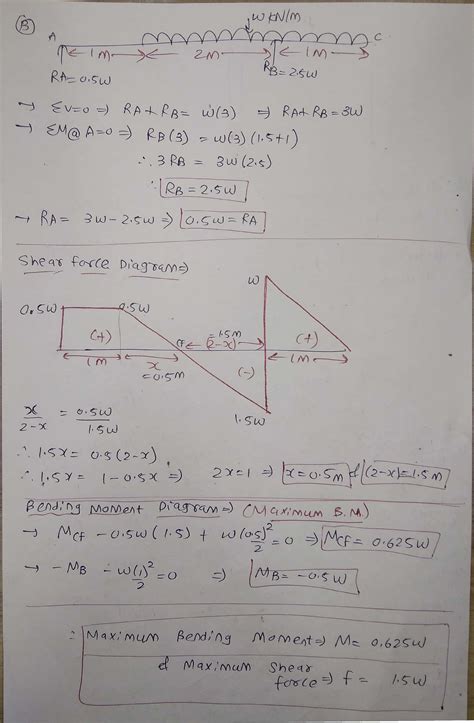 B
w kN/m
A C
1M 2M 1M
RA=0.5w RB=2.5w
→ ΣV=0 ⇒ RA+RB= w(3) ⇒ RA+RB=3w
→ ΣM@A=0⇒ RB(3) = w(3)(1.5+1)
∴ 3RB = 3w(2.5)
∴ RB = 2.5w
→ RA= 3w-2.5w ⇒ 0.5w=RA
Shear force Diagram⇒
w
0.5w 0.5w
(+) CF =1.5M (2-x) (+)
1M x =0.5M (-) 1M
1.5w
x/2-x = 0.5w/1.5w
∴ 1.5x = 0.5(2-x)
∴ 1.5x = 1-0.5x ⇒ 2x=1 ⇒ x=0.5m & (2-x)=1.5m
Bending Moment Diagram⇒ (Maximum B.M)
→ MCF -0.5w(1.5) + w(0.5)²/2 =0 ⇒ MCF = 0.625w
→ -MB - w(1)²/2 =0 ⇒ MB= -0.5w
∴ Maximum Bending Moment⇒ M= 0.625w
& Maximum Shear force⇒ f = 1.5w